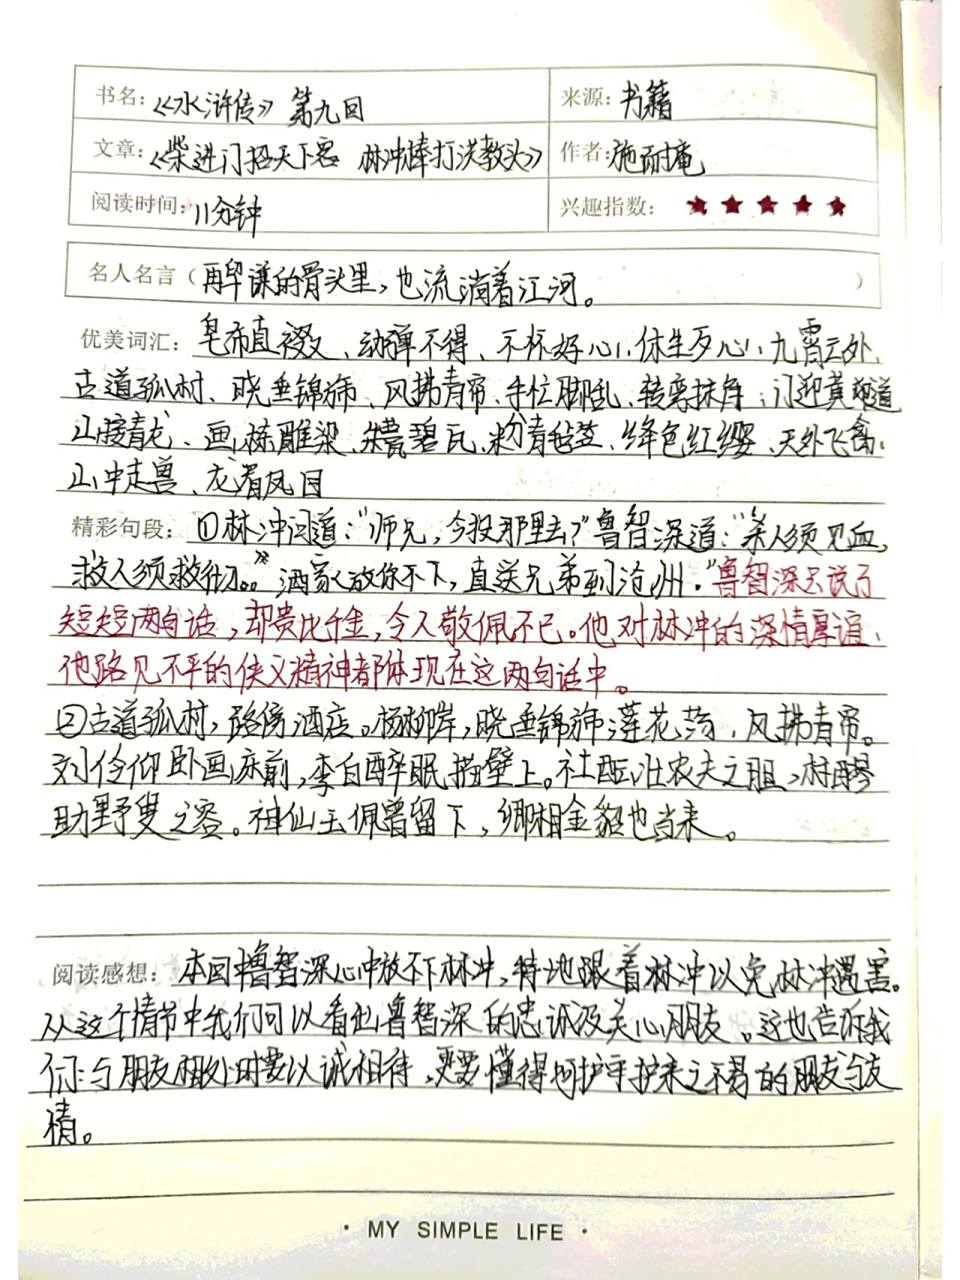 书名：《水浒传》 第九回 来源：书籍
文章：《柴进门招天下客 林冲棒打洪教头》 作者：施耐庵
阅读时间：11分钟 兴趣指数：★★★★★
名人名言（再卑谦的骨头里，也流淌着江河。）
优美词汇：皂布直裰、动弹不得、不怀好心、休生歹心、九霄云外、
古道孤村、晓垂锦旆、风拂青帘、手忙脚乱、转弯抹角、门迎黄道
山接青龙、画栋雕梁、朱甍碧瓦、粉青毡笠、绛色红缨、天外飞禽、
山中走兽、龙眉凤目
精彩句段：①林冲问道："师兄，今投那里去？"鲁智深道："'杀人须见血，
救人须救彻。'洒家放你不下，直送兄弟到沧州。"鲁智深只说了
短短两句话，却贵比千金，令人敬佩不已。他对林冲的深情厚谊，
他路见不平的侠义精神都体现在这两句话中。
②古道孤村，路傍酒店。杨柳岸，晓垂锦旆；莲花荡，风拂青帘。
刘伶仰卧画床前，李白醉眠描壁上。社酝壮农夫之胆，村醪
助野叟之容。神仙玉佩曾留下，卿相金貂也当来。
阅读感想：本回中鲁智深心中放不下林冲，特地跟着林冲以免林冲遇害。
从这个情节中我们可以看出鲁智深的忠诚及关心朋友。这也告诉我
们：与朋友相处时要以诚相待，更要懂得呵护来之不易的朋友与友
情。
· MY SIMPLE LIFE ·